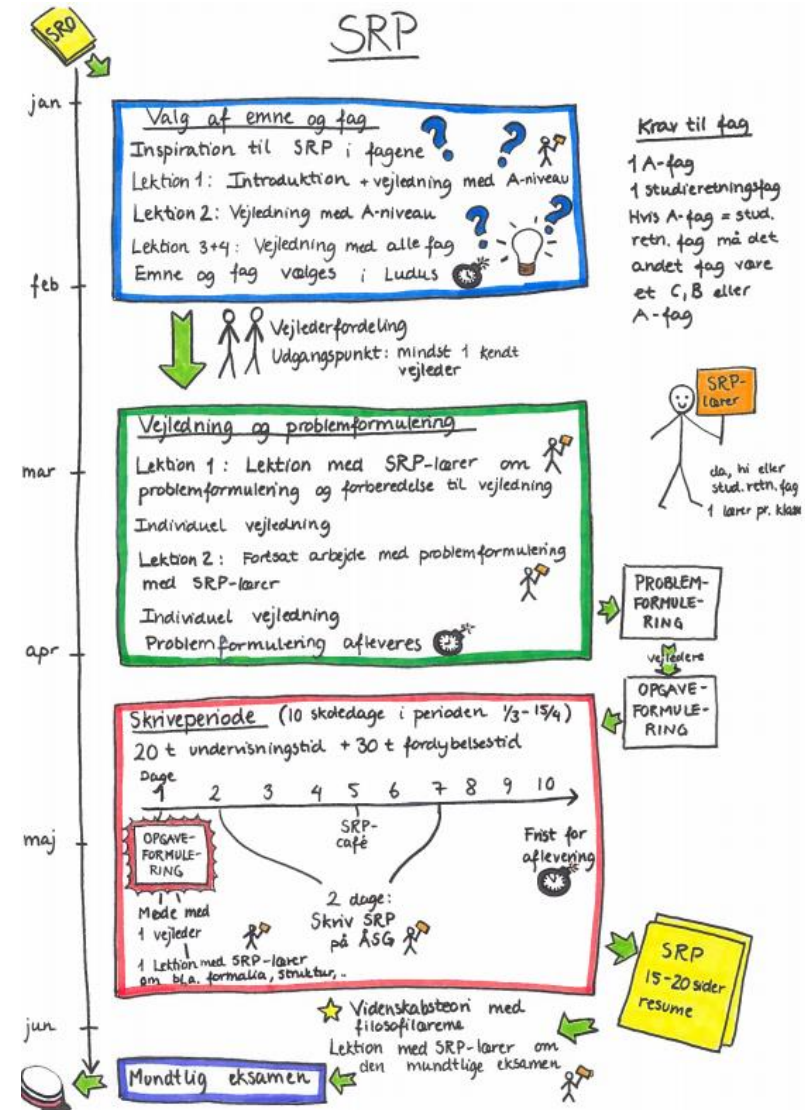 SRO
SRP
jan
Valg af emne og fag
Inspiration til SRP i fagene
Lektion 1: Introduktion + vejledning med A-niveau
Lektion 2: Vejledning med A-niveau
Lektion 3+4: Vejledning med alle fag
Emne og fag vælges i Ludus
Krav til fag
1 A-fag
1 studieretningsfag
Hvis A-fag = stud.
retn. fag må det
andet fag være
et C, B eller
A-fag
feb
Vejlederfordeling
Udgangspunkt: mindst 1 kendt
vejleder
SRP-
lærer
da, hi eller
stud.retn.fag
1 lærer pr. klasse
Vejledning og problemformulering
mar
Lektion 1: Lektion med SRP-lærer om
problemformulering og forberedelse til vejledning
Individuel vejledning
Lektion 2: Fortsat arbejde med problemformulering
med SRP-lærer
Individuel vejledning
Problemformulering afleveres
apr
PROBLEM-
FORMULE-
RING
vejledere
OPGAVE-
FORMULE-
RING
Skriveperiode (10 skoledage i perioden 1/3-15/4)
20 t undervisningstid + 30 t fordybelsestid
Dage
1 2 3 4 5 6 7 8 9 10
maj
OPGAVE-
FORMULE-
RING
SRP-
café
Frist for
aflevering
Møde med
1 vejleder
2 dage:
Skriv SRP
på ÅSG
1 Lektion med SRP-lærer
om bl.a. formalia, struktur,..
SRP
15-20 sider
resume
jun
Videnskabsteori med
filosofilærerne
Lektion med SRP-lærer om
den mundtlige eksamen
Mundtlig eksamen